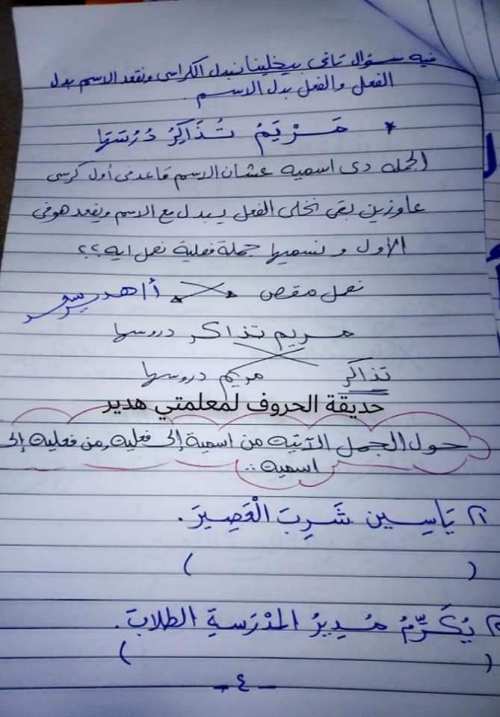 فيه سؤال تاني بيخلينا نبدل الكراسي ونقعد الاسم بدل
الفعل والفعل بدل الاسم
* مَرْيَمُ تُذَاكِرُ دُرُسَهَا
الجملة دي اسمية عشان الاسم قاعد في أول كرسي
عاوزين بقى نخلي الفعل يبدل مع الاسم ويقعد هو في
الأول ونسميها جملة فعلية نعمل ايه؟؟
نعمل مقص أ/هدير
مريم تذاكر دروسها
تذاكر مريم دروسها
حديقة الحروف لمعلمتي هدير
حول الجمل الآتية من اسمية إلى فعلية، من فعلية إلى
اسمية..
يَاسِين شَرِبَ الْعَصِيرَ.
( )
يُكَرِّمُ مُدِيرُ المَدْرَسَةِ الطلابَ.
( )
- ٤ -